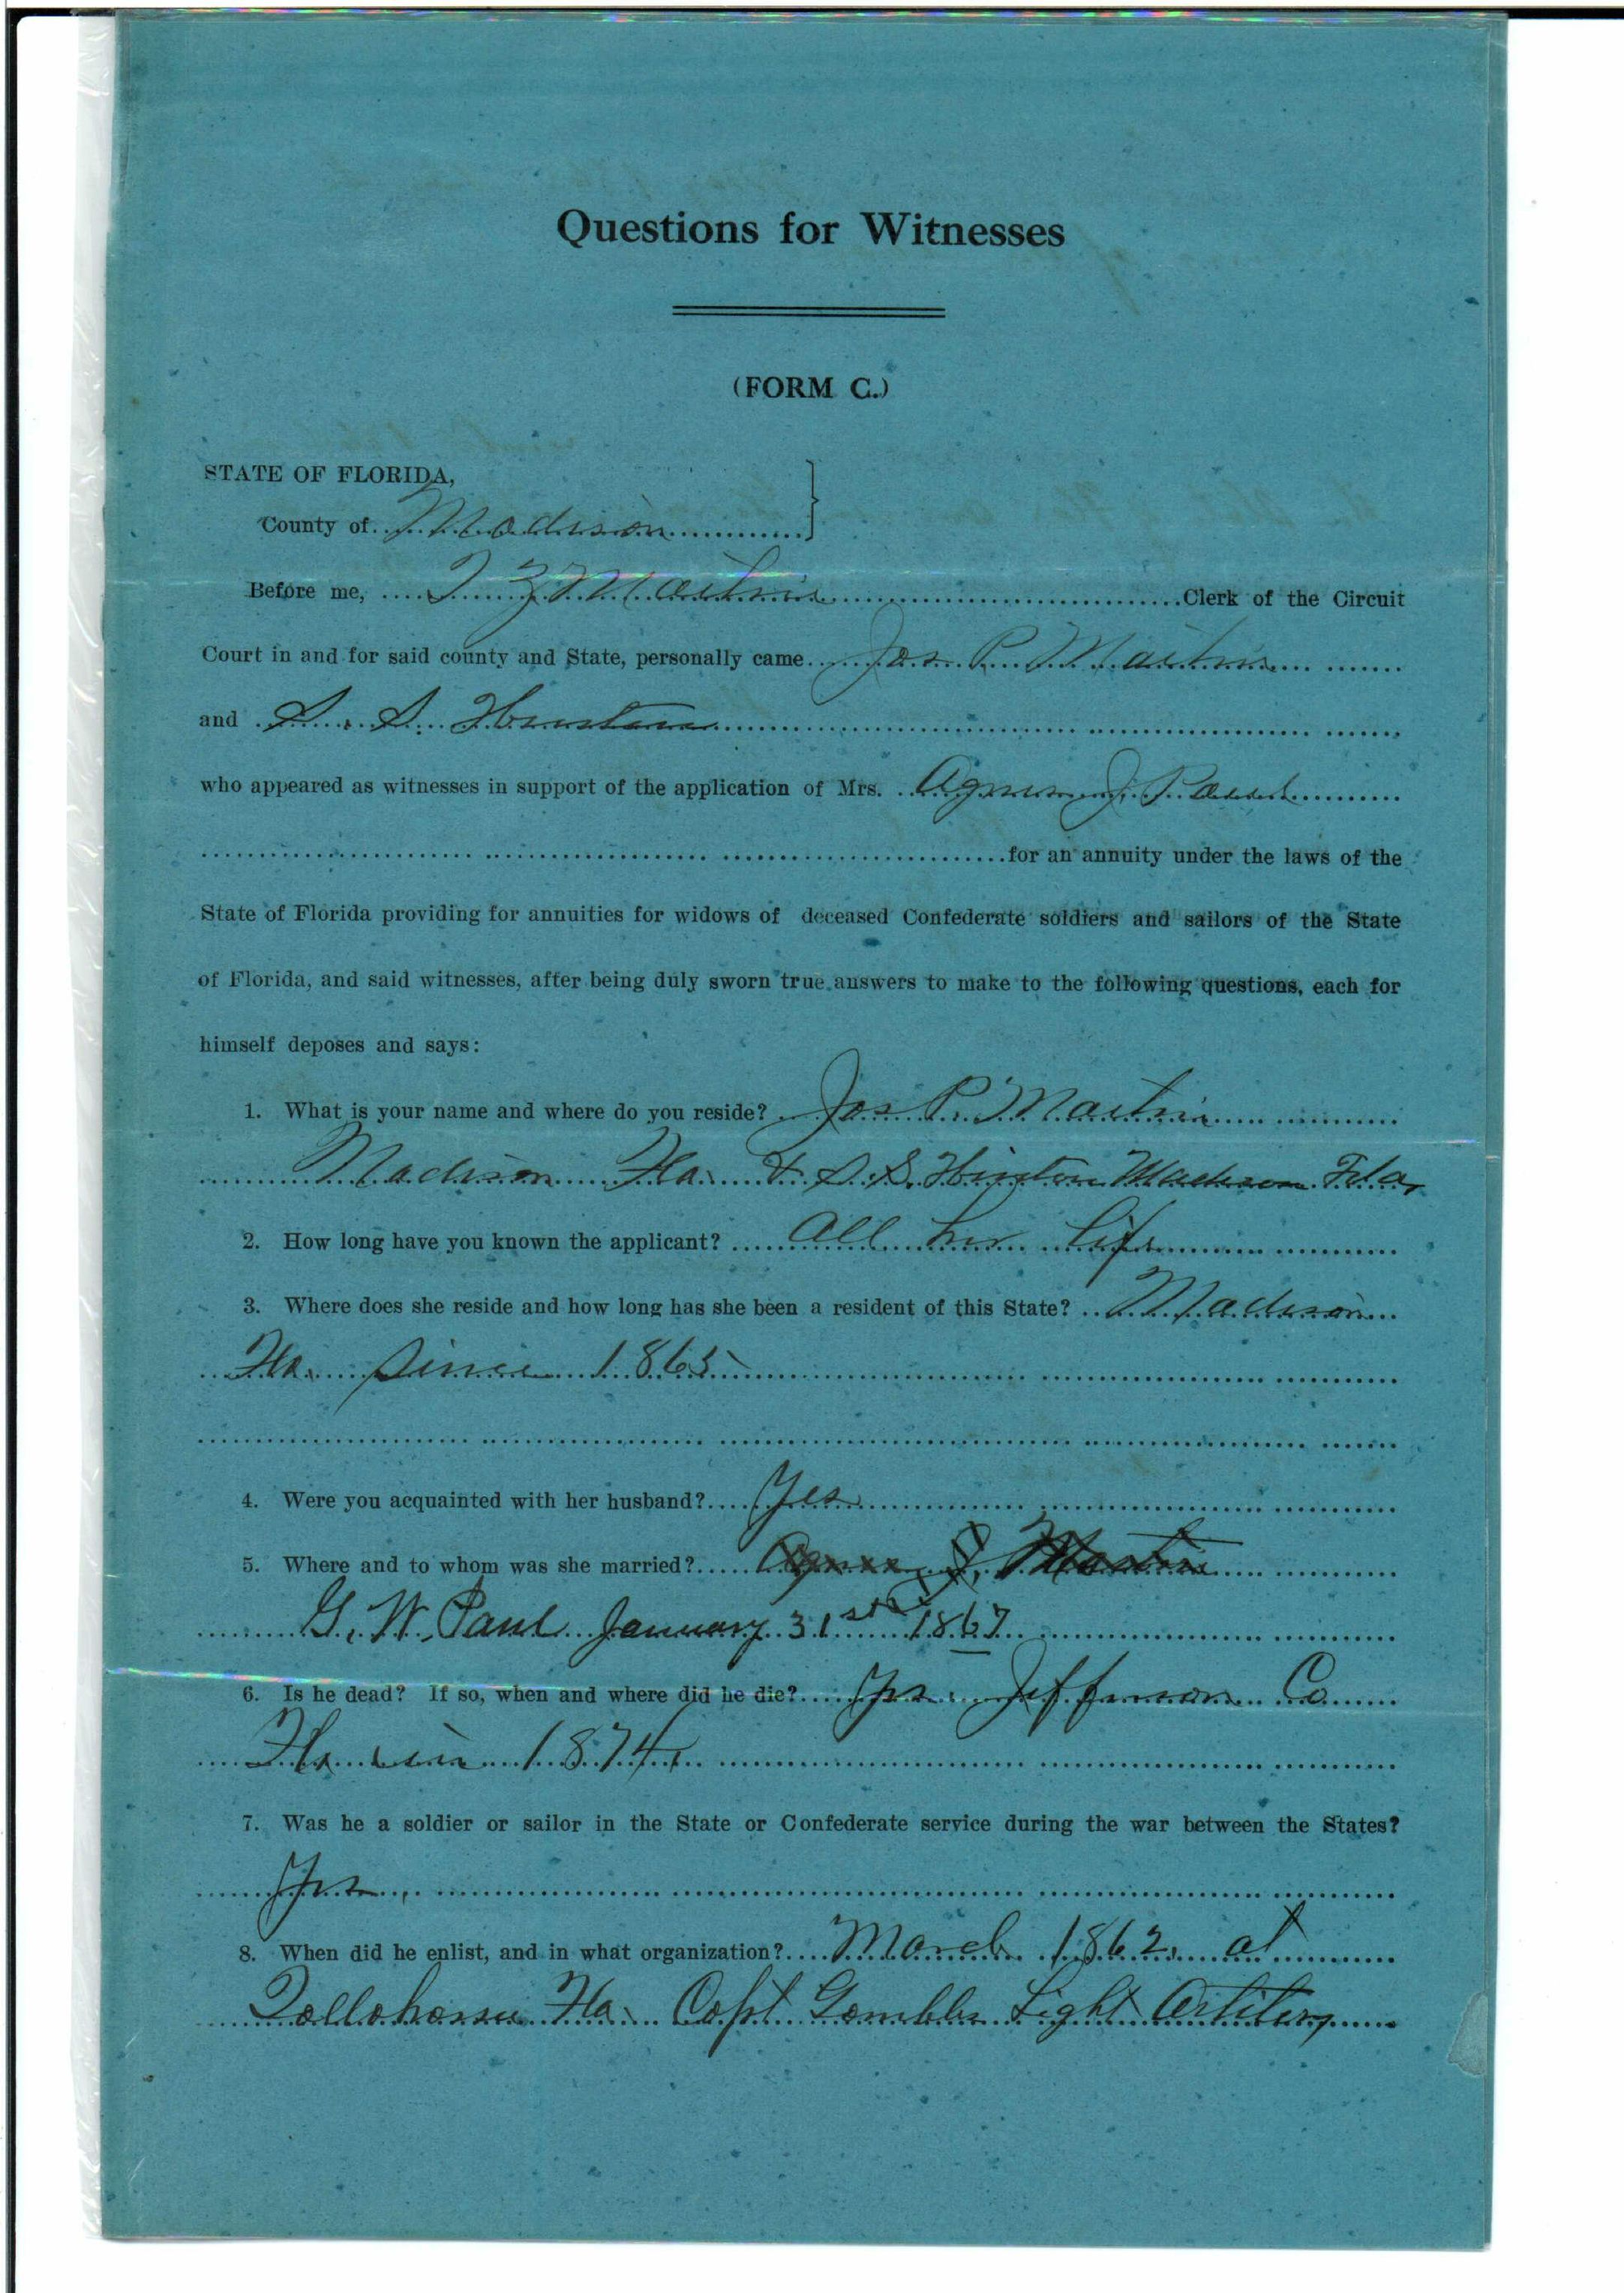 Questions for Witnesses
(FORM C.)
STATE OF FLORIDA,
County of Madison
Before me, T Z Martin Clerk of the Circuit
Court in and for said county and State, personally came Jos. P. Martin
and S. S. Hinton
who appeared as witnesses in support of the application of Mrs. Agnes J. Paul
for an annuity under the laws of the
State of Florida providing for annuities for widows of deceased Confederate soldiers and sailors of the State
of Florida, and said witnesses, after being duly sworn true answers to make to the following questions, each for
himself deposes and says:
1. What is your name and where do you reside? Jos P. Martin
Madison Fla. & S. S. Hinton Madison Fla,
2. How long have you known the applicant? All her life
3. Where does she reside and how long has she been a resident of this State? Madison
Fla. since 1865
4. Were you acquainted with her husband? Yes
5. Where and to whom was she married? Agnes J. Martin
G. W. Paul January 31st 1867
6. Is he dead? If so, when and where did he die? Yes. Jefferson Co
Fla in 1874
7. Was he a soldier or sailor in the State or Confederate service during the war between the States?
Yes.
8. When did he enlist, and in what organization? March 1862. at
Tallahassee Fla. Capt Gambles Light Artilery